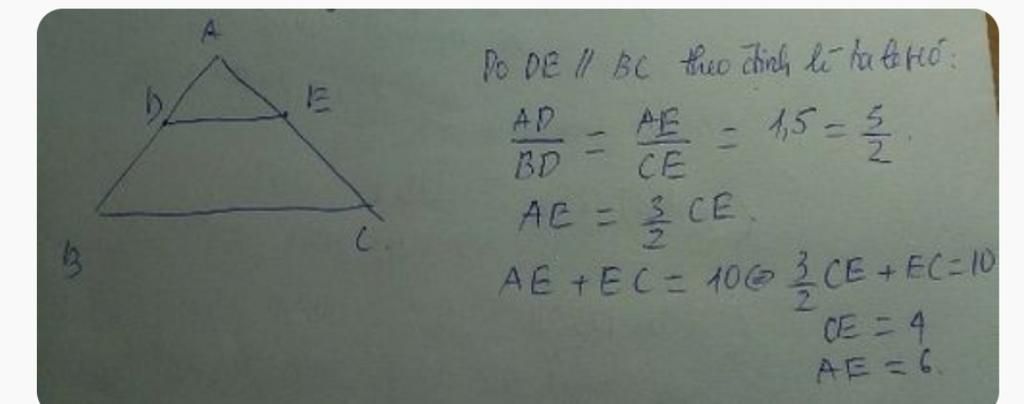 A
D E
B C.
Do DE // BC theo định lí ta let có:
AD/BD = AE/CE = 1,5 = 5/2.
AE = 3/2 CE.
AE + EC = 10 ⇔ 3/2 CE + EC = 10
CE = 4
AE = 6.